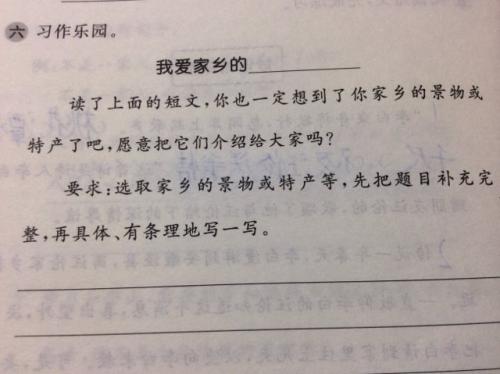 六 习作乐园。
我爱家乡的
读了上面的短文,你也一定想到了你家乡的景物或
特产了吧,愿意把它们介绍给大家吗?
要求:选取家乡的景物或特产等,先把题目补充完
整,再具体、有条理地写一写。